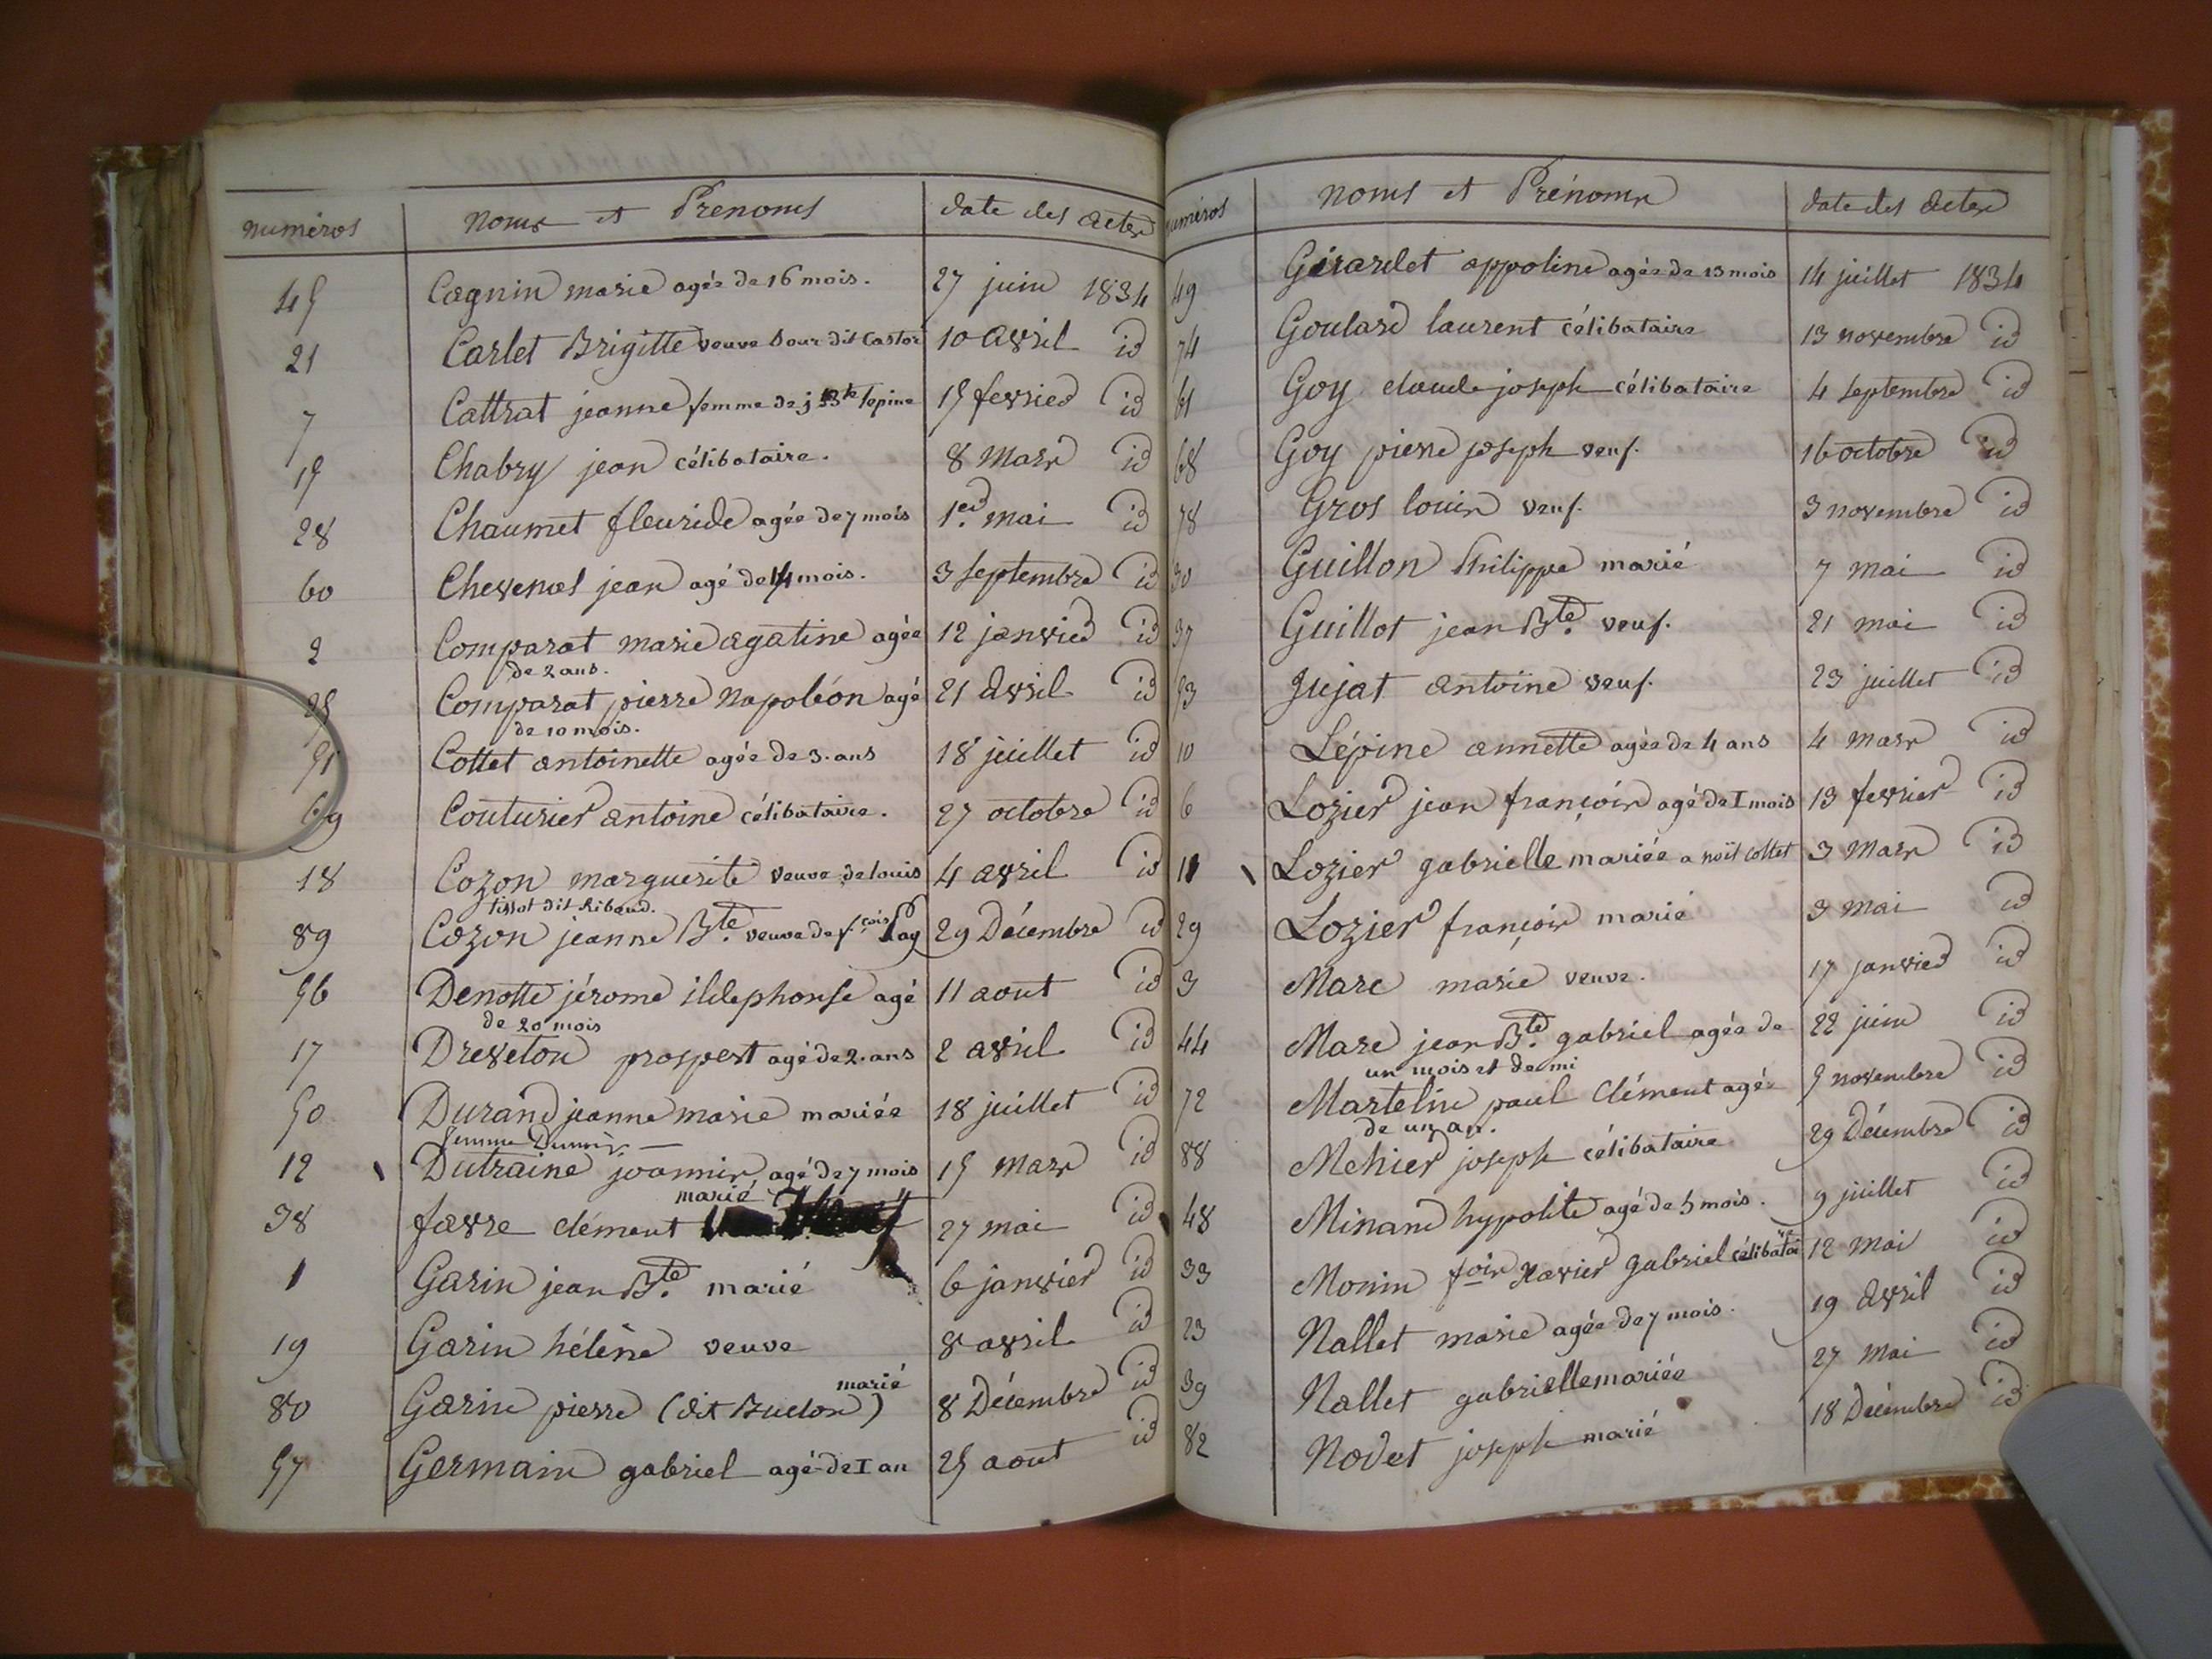 numéros noms et Prenoms date des actes
45 Cagnin marie agée de 16 mois. 27 juin 1834
21 Carlet Brigitte veuve Dour dit Castor 10 avril id
7 Cattrat jeanne femme de j Bte lepine 15 fevrier id
15 Chabry jean célibataire. 8 Mars id
28 Chaumet fleuride agée de 7 mois 1er mai id
60 Chevenas jean agé de 14 mois. 3 septembre id
2 Comparat marie agatine agée 12 janvier id
de 2 ans.
25 Comparat pierre Napoléon agé 21 avril id
de 10 mois.
51 Cottet antoinette agée de 3. ans 18 juillet id
69 Couturier antoine célibataire. 27 octobre id
18 Cozon marguerite veuve de louis 4 avril id
tissot dit Ribaud.
89 Cozon jeanne Bte. veuve de f.çois Pag 29 Décembre id
56 Denotte jérome ildephonse agé 11 aout id
de 20 mois
17 Dreveton prospert agé de 2. ans 2 avril id
50 Durand jeanne marie mariée 18 juillet id
femme
12 Dutraine joannir agé de 7 mois 15 mars id
marié
38 favre clément 27 mai id
1 Garin jean Bte. marié 6 janvier id
19 Garin héléne veuve 8 avril id
marié
80 Garin pierre (dit Buclon) 8 Décembre id
57 Germain gabriel agé de I an 25 aout id
numéros noms et Prénoms date des actes
49 Girardet appoline agée de 13 mois 14 juillet 1834
74 Goulard laurent célibataire 13 novembre id
61 Goy claude joseph célibataire 4 septembre id
68 Goy pierre joseph veuf. 16 octobre id
78 Gros louis veuf. 3 novembre id
30 Guillon Philippe marié 7 mai id
37 Guillot jean Bte. veuf. 21 mai id
53 Jujat antoine veuf. 23 juillet id
10 Lépine annette agée de 4 ans 4 mars id
6 Lozier jean françois agé de I mois 13 fevrier id
11 Lozier gabrielle mariée a noït cottet 3 Mars id
29 Lozier françois marié 3 mai id
3 Marc marie veuve. 17 janvier id
44 Marc jean Bte. gabriel agée de 22 juin id
un mois et demi
72 Martelin paul Clément agé 5 novembre id
de un an.
88 Mehier joseph célibataire 29 Décembre id
48 Minand hypolite agé de 5 mois. 9 juillet id
33 Monin fois Xavier gabriel célibatai 12 Mai id
23 Nallet marie agée de 7 mois. 19 avril id
39 Nallet gabrielle mariée 27 Mai id
82 Nodet joseph marié 18 Décembre id